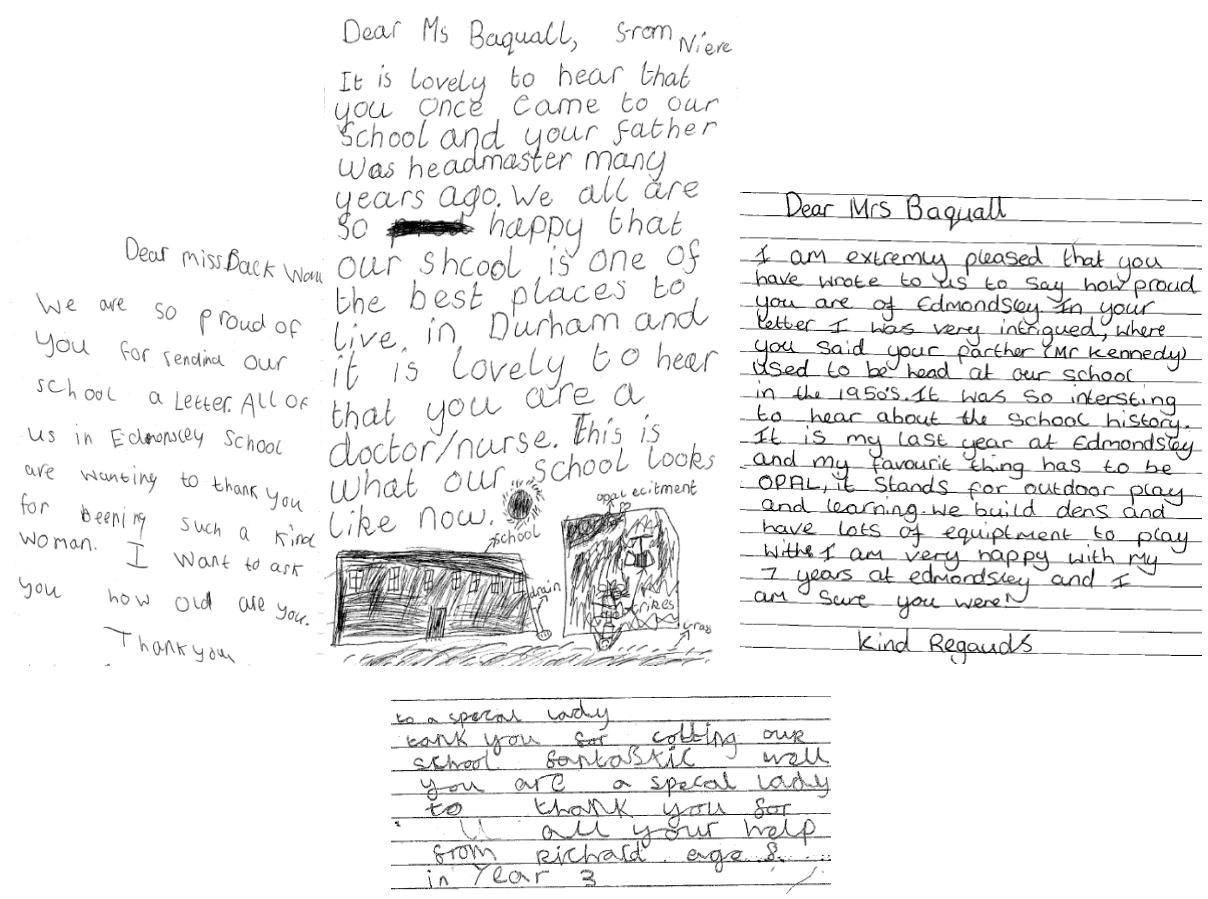 Dear miss Back Wa
We are so proud of
you for sending our
school a Letter. All of
us in Edmonsley School
are wanting to thank you
for beening such a kind
woman. I want to ask
you how old are you.
Thank you
Dear Ms Baquall, from Niere
It is lovely to hear that
you once came to our
school and your father
was headmaster many
years ago. We all are
so happy that
our shcool is one of
the best places to
live, in Durham and
it is lovely to hear
that you are a
doctor/nurse. This is
what our school looks
like now.
opal ecitment
school
drain
trikes
gras
Dear Mrs Baquall
I am extremly pleased that you
have wrote to us to say how proud
you are of Edmondsley In your
letter I was very intrigued, where
you said your parther (Mr Kennedy)
used to be head at our school
in the 1950's. It was so intersting
to hear about the school history.
It is my last year at Edmondsley
and my favourit thing has to be
OPAL, it stands for outdoor play
and learning. we build dens and
have lots of equiptment to play
withe I am very happy with my
7 years at edmondsley and I
am sure you were!
Kind Regauds
to a specal lady
tank you for colling our
school fantastic well
you are a specal lady
to thank you for
all your help
from Richard age 8
in Year 3